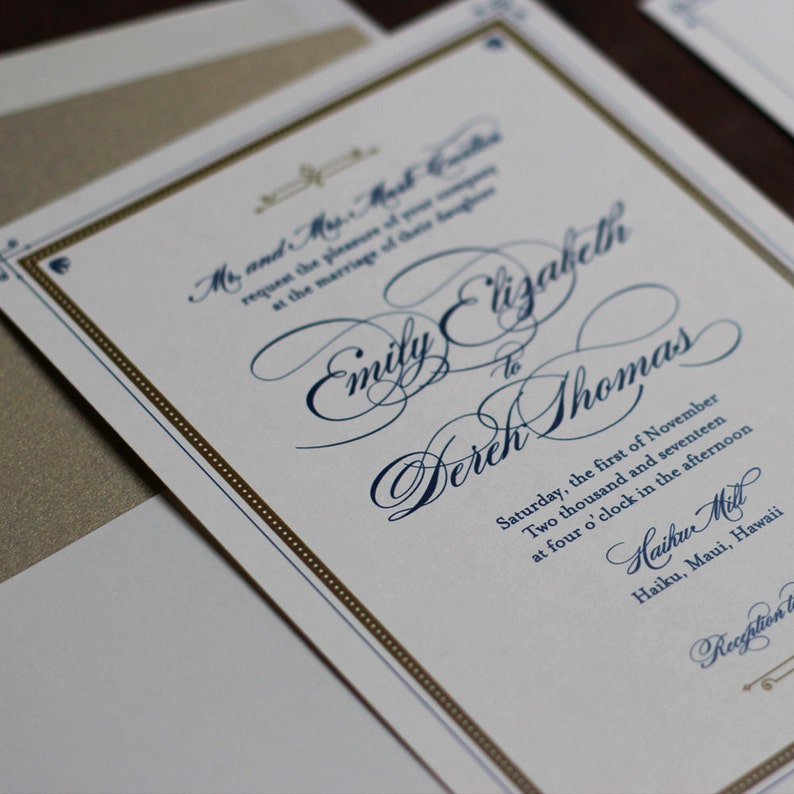 Mr. and Mrs. Mark
request the pleasure of your company
at the marriage of their daughter
Emily Elizabeth
to
Derek Thomas
Saturday, the first of November
Two thousand and seventeen
at four o'clock in the afternoon
Haiku Mill
Haiku, Maui, Hawaii
Reception